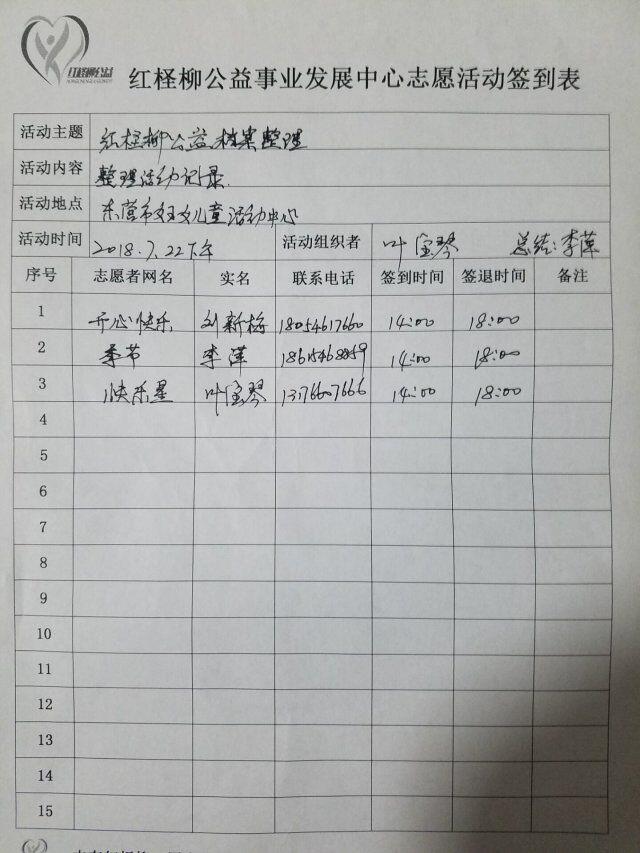 红柽柳公益
红柽柳公益事业发展中心志愿活动签到表
活动主题 红柽柳公益档案整理
活动内容 整理活动记录.
活动地点 东营市妇女儿童活动中心
活动时间 2018.7.22下午 活动组织者 叶宝琴 总结:李萍
序号 志愿者网名 实名 联系电话 签到时间 签退时间 备注
1 开心快乐 刘新梅 18054617660 14:00 18:00
2 季节 李萍 14:00 18:00
3 快乐星 叶宝琴 14:00 18:00
4
5
6
7
8
9
10
11
12
13
14
15